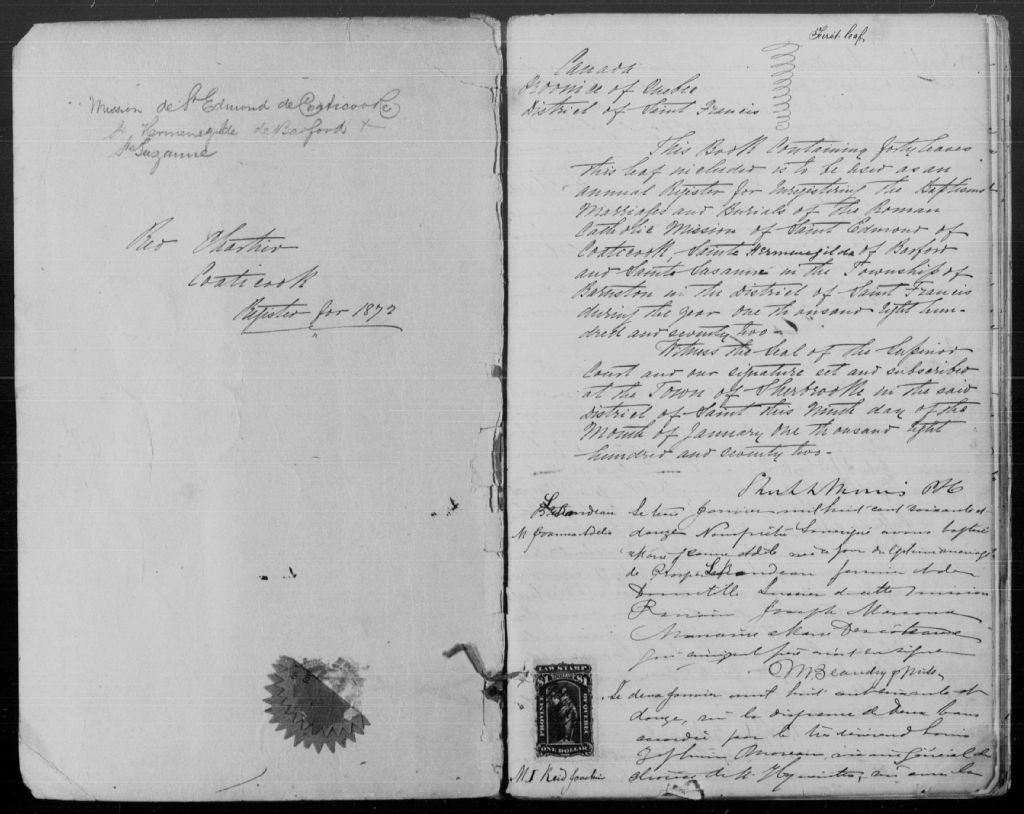 Mission de St Edmond de Coaticooke
St Hermenegilde de Barford x
Ste Suzanne
Rev Chartier
Coaticook
Register for 1872
First leaf
Canada
Province of Quebec
District of Saint Francis
This Book Containing forty leaves
this leaf included is to be used as an
annual Register for Enregistering the Baptisms
Marriages and Burials of the Roman
Catholic Mission of Saint Edmond of
Coaticook, Sainte Hermenegilde of Barford
and Sainte Susanne in the Township of
Barnston in the District of Saint Francis
during the year one thousand eight hun-
dred and seventy two-
Witness the Seal of the Superior
Court and our signature set and subscribed
at the Town of Sherbrooke in the said
District of Saint this Ninth day of the
Month of January One thousand eight
hundred and seventy two-
Short & Morris PSC
B
M Joanna Adela
Le Janvier mil huit cent soixante et
douze Nous prêtre Soussigné avons baptisé
Marie née du légitime mariage
de Prosper
Lussier de cette mission
Parrain Joseph Marcoux
Marraine Marie
qui ainsi que le père n'ont su signer
M Beaudry Ptre
LAW STAMP
$1 $1
PROVINCE OF QUEBEC
ONE DOLLAR
Le deux Janvier mil huit cent soixante et
douze, vu la dispense de deux bans
accordée par le très révérend Louis
Zéphirin Moreau, vicaire Général du
diocèse de St Hyacinthe, vu aussi la
M1 Reid